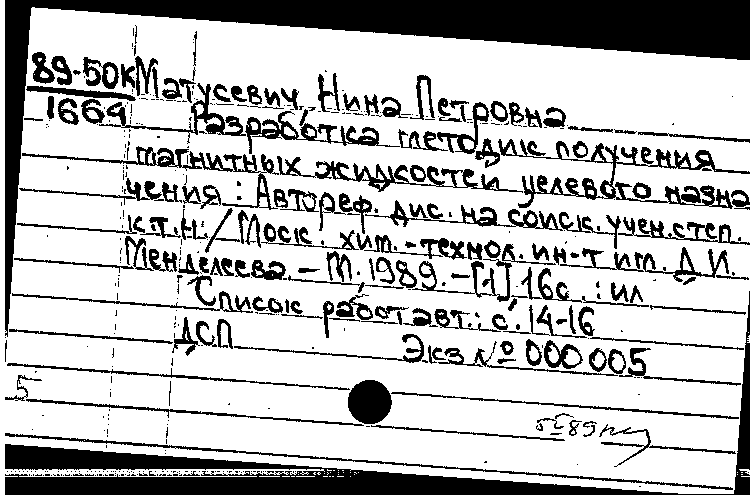 89-50К Матусевич, Нина Петровна
1664 Разработка методик получения
магнитных жидкостей целевого назна
чения : Автореф. дис. на соиск. учен. степ.
к.т.н. / Моск. хим.-технол. ин-т им. Д.И.
Менделеева. – М. 1989. – [1], 16с. : ил
Список работ авт.: с. 14-16
ДСП Экз № 000005
5